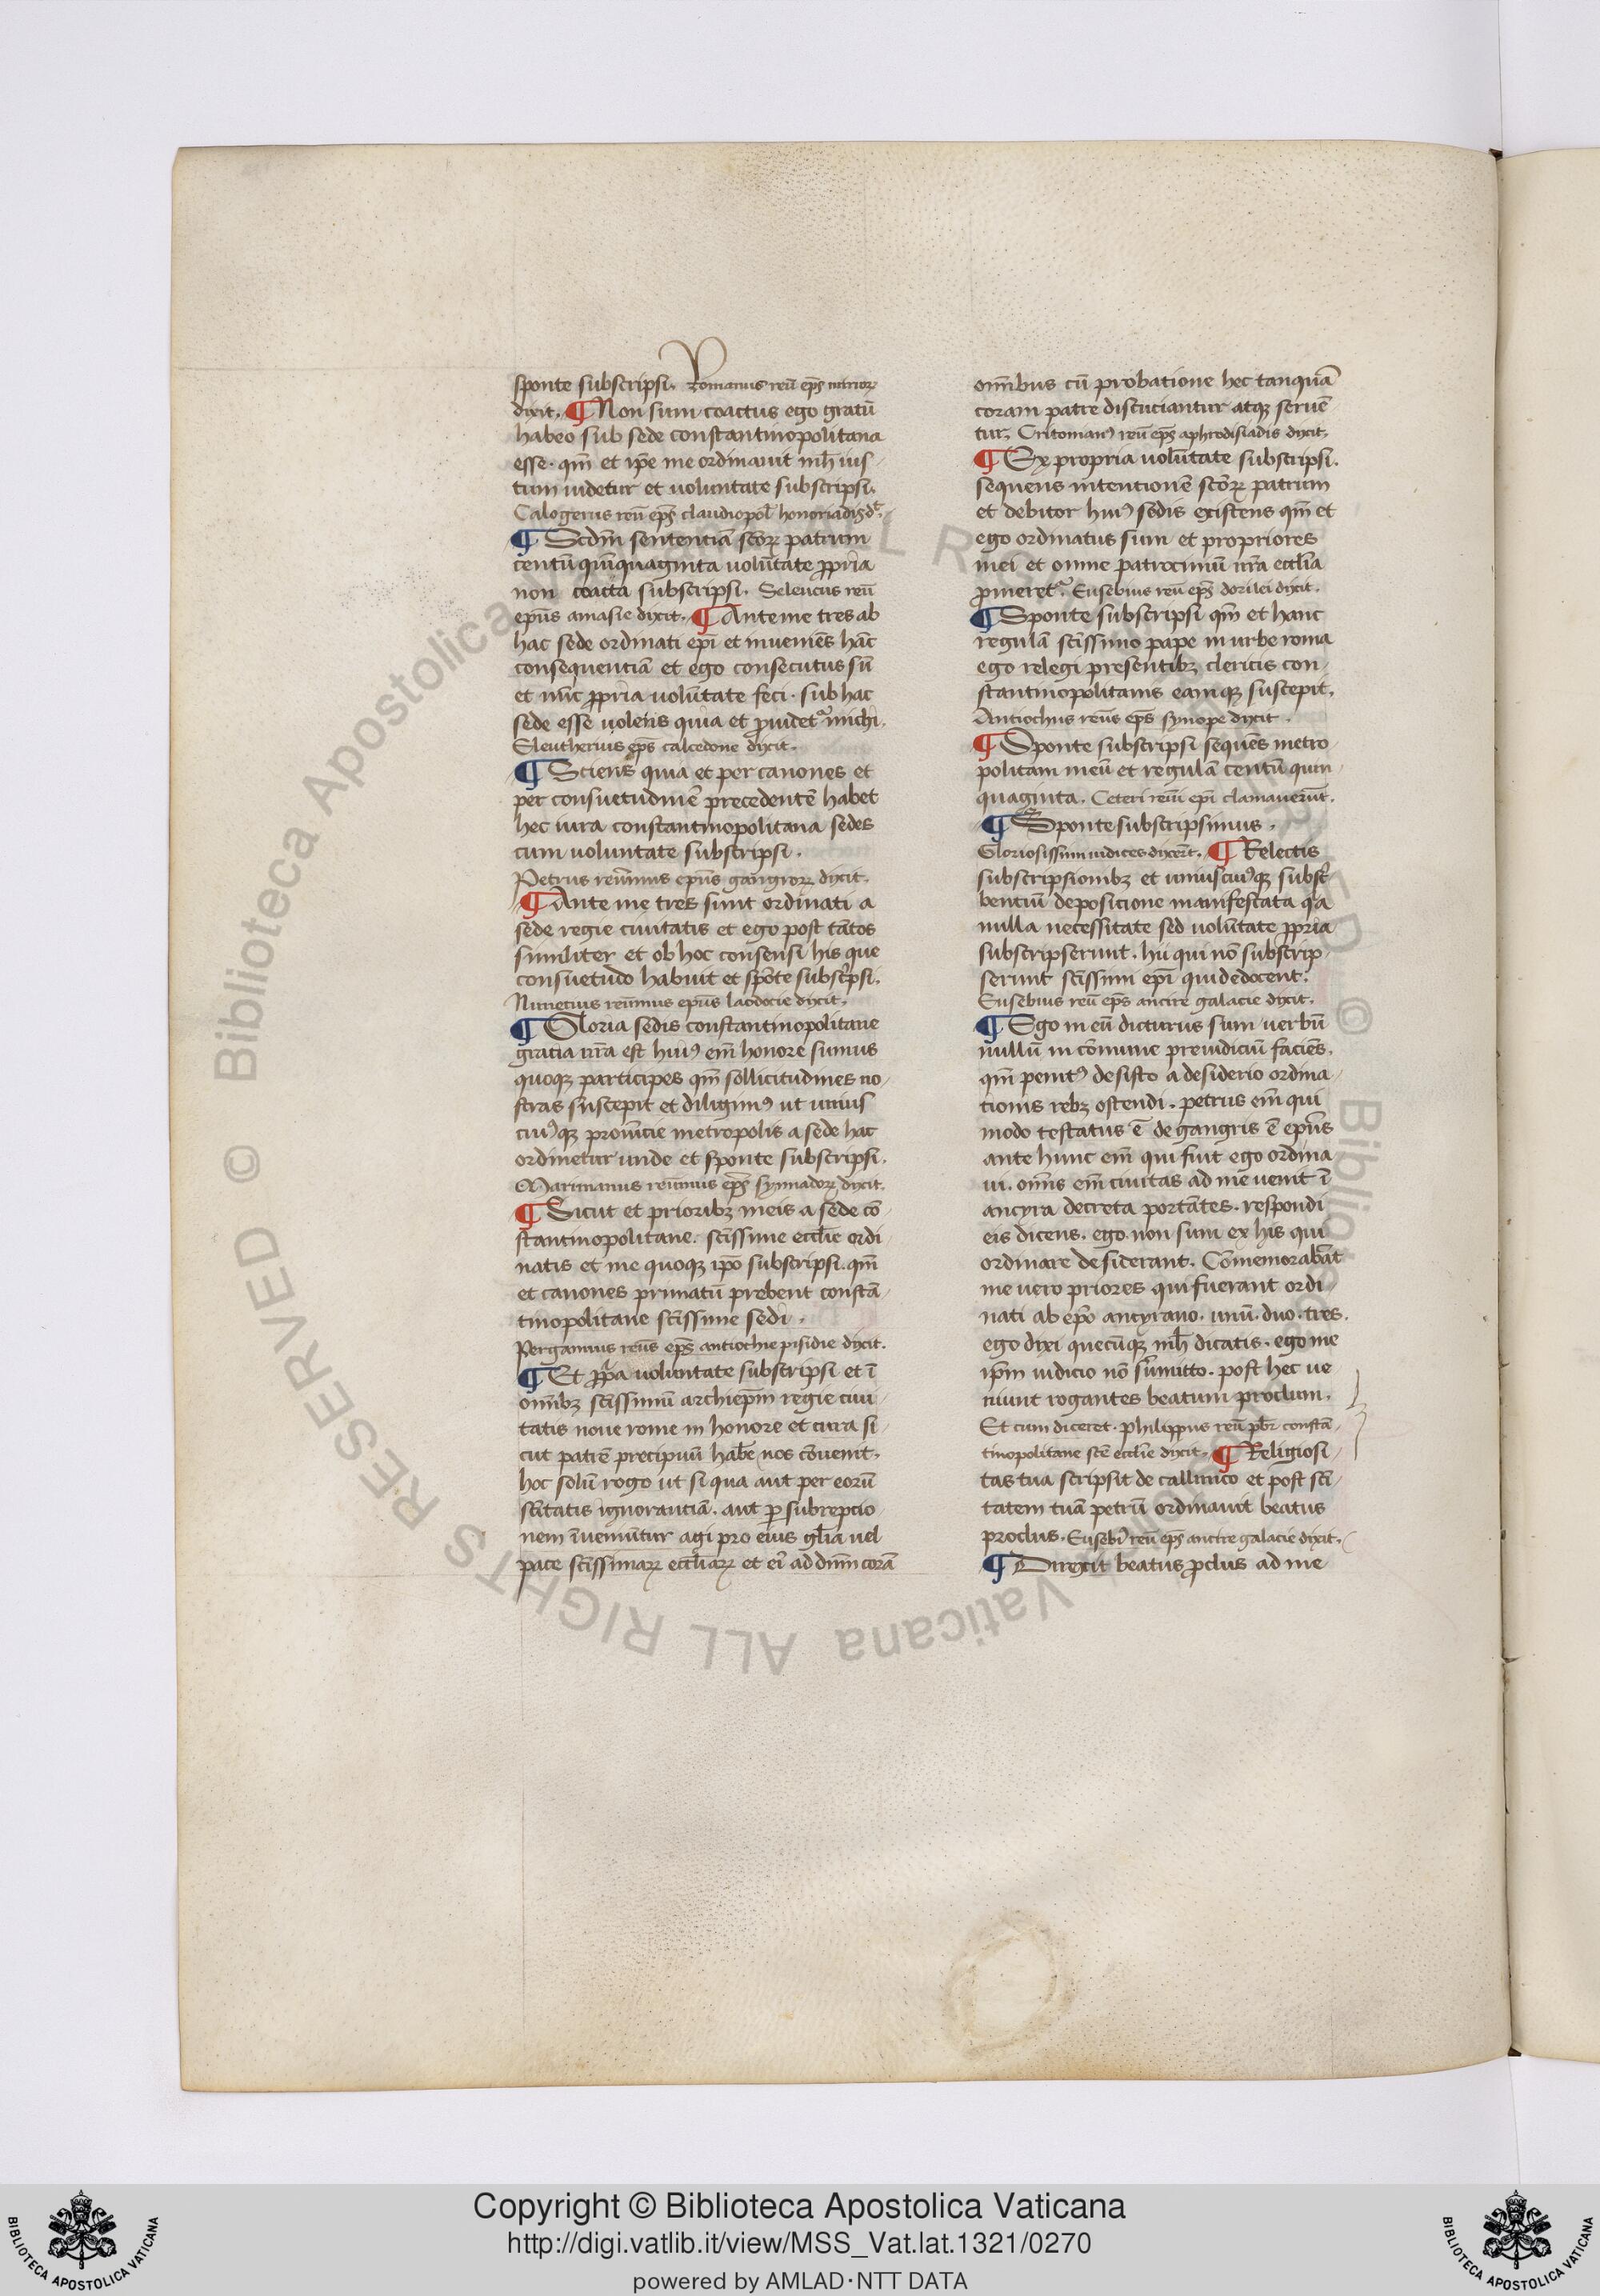 sponte subscripsi. Romanus reu̅ ep̅s mirroꝝ
dixit. ¶ Non sum coactus ego gratu̅
habeo sub sede constantinopolitana
esse. qm̅ et ip̅e me ordinauit mh̅ ius-
tum uidetur et uoluntate subscripsi.
Calogerus reu̅ ep̅s claudiopol̅ honoriadis d̅t.
¶ Scd̅m sententia̅ sc̅oꝝ patrum
centu̅ qui̅quaginta uolu̅tate ꝓpria
non coacta subscripsi. Seleucus reu̅
epu̅s amasie dixit. ¶ Ante me tres ab
hac sede ordinati ep̅i et inuenie̅s ha̅c
consequentia̅ et ego consecutus su̅
et nu̅c ꝓpria uolu̅tate feci. sub hac
sede esse uolens quia et ꝓuidet᷑ michi.
Eleutherius ep̅s calcedone dixit.
¶ Sciens quia et per canones et
per consuetudine̅ precedente̅ habet
hec iura constantinopolitana sedes
cum uoluntate subscripsi.
Petrus reue̅mus epu̅s gangroꝝ dixit.
¶ Ante me tres sunt ordinati a
sede regie ciuitatis et ego post ta̅tos
similiter et ob hoc consensi his que
consuetudo habuit et spo̅te subsc̅psi.
Nunetius reu̅mus epu̅s laodocie dixit.
¶ Gloria sedis constantinopolitane
gracia nr̅a est huiꝰ em̅ honore sumus
quoqꝫ participes qm̅ sollicitudines no-
stras suscepit et diligimꝰ ut unius
cuiꝰqꝫ prouincie metropolis a sede hac
ordinetur unde et sponte subscripsi.
Marinianus reu̅mus ep̅s synnadoꝝ dixit.
¶ Sicut et prioribꝫ meis a sede co̅-
stantinopolitane. sc̅issime eccl̅ie ordi-
natis et me quoqꝫ ip̅o subscripsi. qm̅
et canones primatu̅ prebent consta̅-
tinopolitane sc̅issime sedi.
Pergamius reu̅s ep̅s antiochie pisidie dixit.
¶ Et ꝓp̅a uoluntate subscripsi et i̅
om̅ibꝫ sc̅issimu̅ archiep̅m regie ciui-
tatis noue rome in honore et cura si-
cut patre̅ precipuu̅ habe̅ nos co̅uenit.
hoc solu̅ rogo ut si qua aut per eoru̅
sc̅itatis ignorantia̅. aut ꝑ subreptio-
nem i̅ueniu̅tur agi pro eius gl̅ia uel
pace sc̅issimaꝝ eccl̅iaꝝ et ei̅ ad dn̅m cora̅
om̅ibus cu̅ probatione hec tanqua̅
coram patre discuciantur atqꝫ serue̅-
tur. Critonianꝰ reu̅ ep̅s aphrodisiadis dixit.
¶ Ex propria uolu̅tate subscripsi.
sequens intentione̅ sc̅oꝝ patrum
et debitor huiꝰ sedis existens qm̅ et
ego ordinatus sum et propriores
mei et omne patrociniu̅ nr̅a eccl̅ia
ꝓmeret᷑. Eusebius reu̅ ep̅s dorilei dixit.
¶ Sponte subscripsi qm̅ et hanc
regula̅ sc̅issimo pape in urbe roma
ego relegi presentibꝫ clericis con-
stantinopolitanis eamqꝫ suscepit.
Antiochus reu̅s ep̅s synope dixit.
¶ Sponte subscripsi seque̅s metro-
politam meu̅ et regula̅ centu̅ quin-
quaginta. Ceteri reui̅ ep̅i clamaueru̅t.
¶ Sponte subscripsimus.
Gloriosissimi iudices dixer̅t. ¶ Relectis
subscripsionibꝫ et uniuscuiꝰqꝫ subsc̅-
bentiu̅ deposicione manifestata qa̅
nulla necessitate sed uolu̅tate ꝓpria
subscripserunt. hii qui no̅ subscrip-
serunt sc̅issimi ep̅i quid edocent.
Eusebius reu̅ ep̅s ancire galacie dixit.
¶ Ego in eu̅ dicturus sum uerbu̅
nullu̅ in co̅mune preiudiciu̅ facie̅s.
qm̅ penitꝰ desisto a desiderio ordina-
tionis rebꝫ ostendi. petrus em̅ qui
modo testatus e̅ de gangris e̅ epu̅s
ante hunc em̅ qui fuit ego ordina-
ui. om̅is em̅ ciuitas ad me uenit i̅
ancyra decreta porta̅tes. respondi
eis dicens. ego non sum ex his qui
ordinare desiderant. Co̅memoraba̅t
me uero priores qui fuerant ordi-
nati ab ep̅o ancyrano. unu̅. duo. tres.
ego dixi quecu̅qꝫ mh̅ dicatis. ego me
ip̅m iudicio no̅ su̅mitto. post hec ue-
niunt rogantes beatum proclum.
Et cum diceret. Philippus reu̅ pb̅r consta̅-
tinopolitane sc̅e eccl̅ie dixit. ¶ Religiosi-
tas tua scripsit de callinico et post sc̅i-
tatem tua̅ petru̅ ordinauit beatus
proclus. Eusebiꝰ reu̅ ep̅s ancire galacie dixit.
¶ Direxit beatus ꝓclus ad me
Copyright © Biblioteca Apostolica Vaticana
http://digi.vatlib.it/view/MSS_Vat.lat.1321/0270
powered by AMLAD·NTT DATA
BIBLIOTECA APOSTOLICA VATICANA
BIBLIOTECA APOSTOLICA VATICANA
© Biblioteca Apostolica Vaticana ALL RIGHTS RESERVED